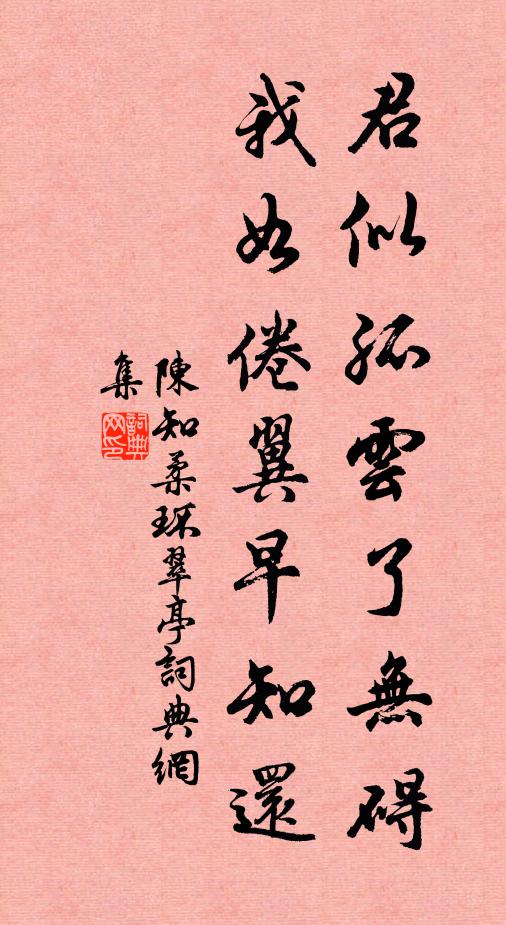 君似孤雲了無碍
我如倦翼早知還
陳知柔環翠亭詞典網
集
詞典
网印